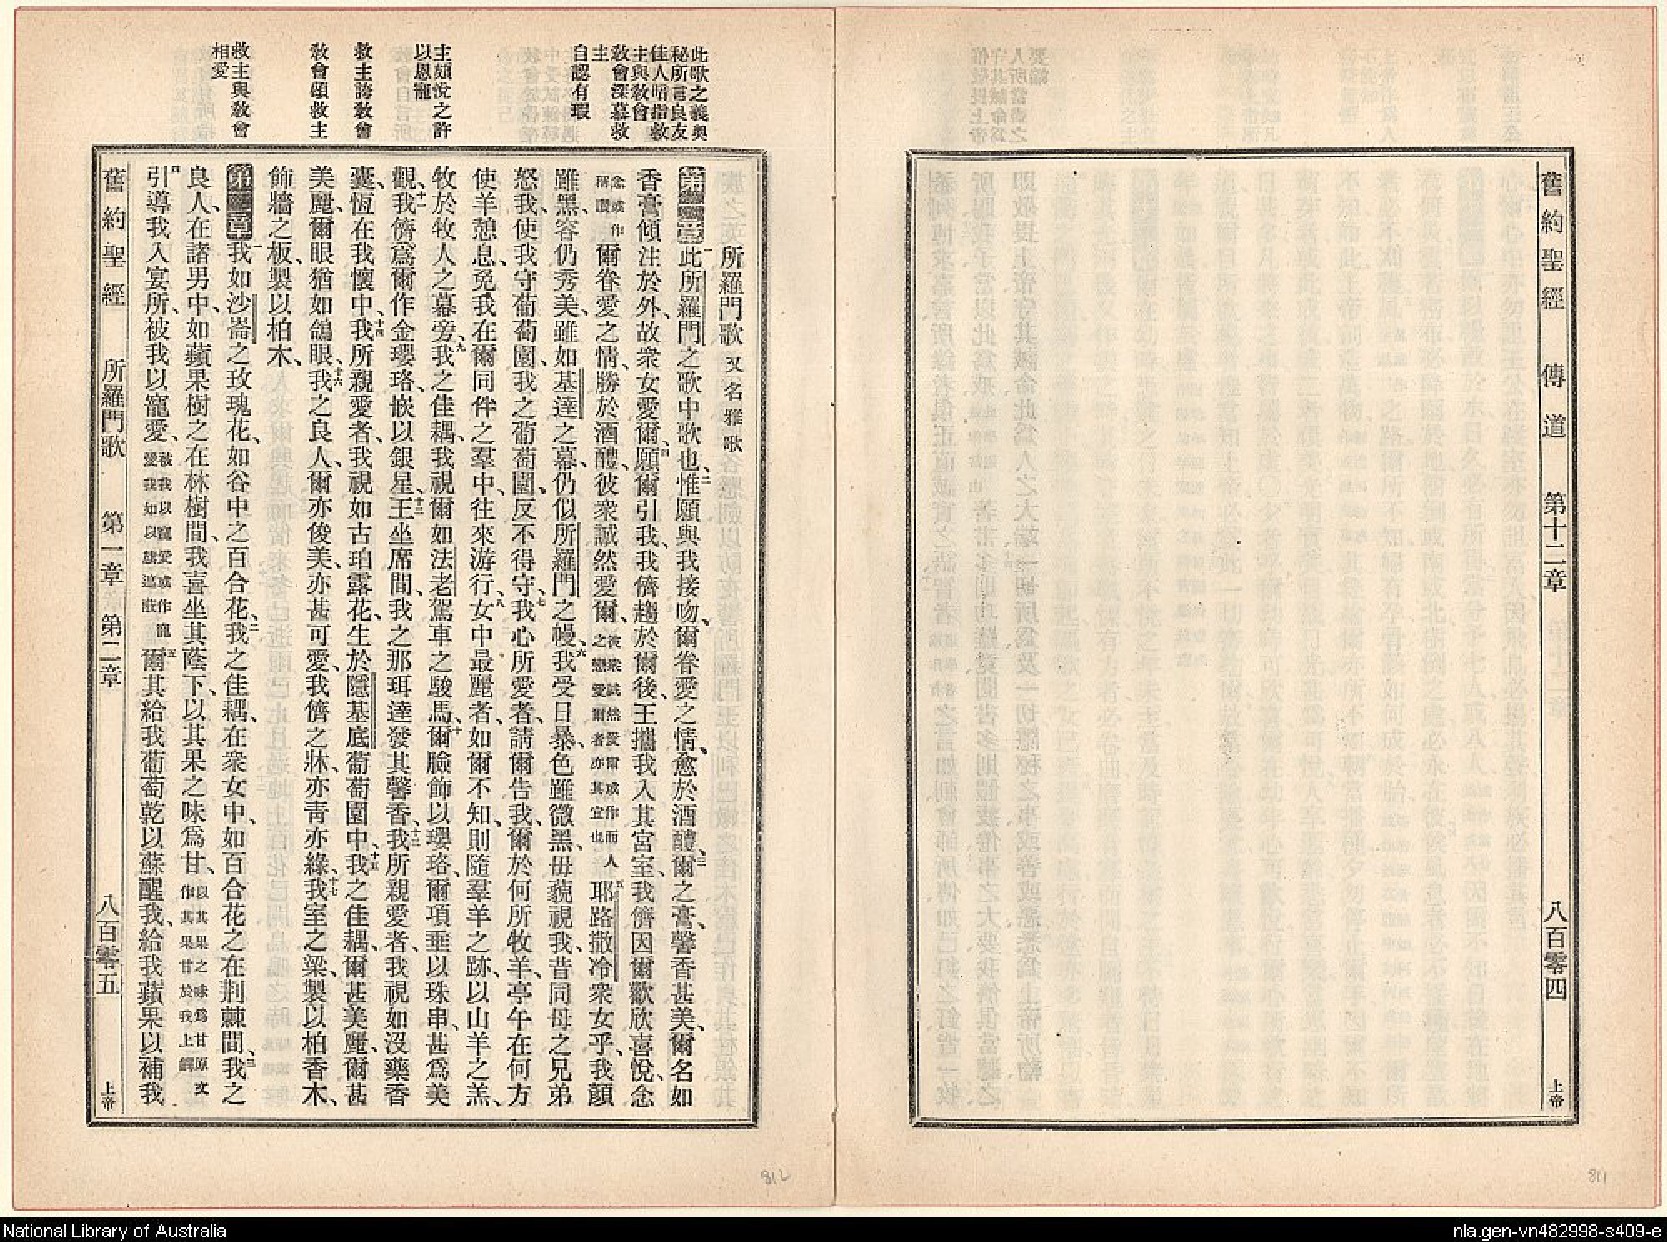 舊約聖經 傳道 第十二章 八百零四 上帝
此歌之義奧
秘所言良友
佳人暗指救
主與教會
教會深慕救
主
自認有瑕
主頗悅之許
以恩寵
救主誇教會
教會頌救主
救主與教會
相愛
所羅門歌 又名雅歌
第一章一此所羅門之歌中歌也、二惟願與我接吻、爾眷愛之情、愈於酒醴、三爾之膏馨香甚美、爾名如
香膏傾注於外、故衆女愛爾、四願爾引我、我儕趨於爾後、王攜我入其宮室、我儕因爾歡欣喜悅、念
爾眷愛之情、勝於酒醴、彼衆誠然愛爾、五耶路撒冷衆女乎、我顏
雖黑、容仍秀美、雖如基達之幕、仍似所羅門之幔、六我受日暴、色雖微黑、毋藐視我、昔同母之兄弟
怒我、使我守葡萄園、我之葡萄園、反不得守、七我心所愛者、請爾告我、爾於何所牧羊、亭午在何方
使羊憩息、免我在爾同伴之羣中、往來游行、八女中最麗者、如爾不知、則隨羣羊之跡、以山羊之羔、
牧於牧人之幕旁、九我之佳耦、我視爾如法老駕車之駿馬、十爾臉飾以瓔珞、爾項垂以珠串、甚爲美
觀、十一我儕爲爾作金瓔珞、嵌以銀星、十二王坐席間、我之那珥達發其馨香、十三我所親愛者、我視如沒藥香
囊、恆在我懷中、十四我所親愛者、我視如古珀露花、生於隱基底葡萄園中、十五我之佳耦、爾甚美麗、爾甚
美麗、爾眼猶如鴿眼、十六我之良人、爾亦俊美、亦甚可愛、我儕之牀、亦青亦綠、十七我室之梁、製以柏香木、
飾牆之板、製以柏木、
第二章一我如沙崙之玫瑰花、如谷中之百合花、二我之佳耦、在衆女中、如百合花之在荆棘間、三我之
良人、在諸男中、如蘋果樹之在林樹間、我喜坐其蔭下、以其果之味爲甘、以其果之味爲甘原文作其果甘於我上齶
四引導我入宴所、被我以寵愛、五爾其給我葡萄乾以蘇醒我、給我蘋果以補我
舊約聖經 所羅門歌 第一章 第二章 八百零五 上帝
812
811
National Library of Australia
nla.gen-vn482998-s409-e